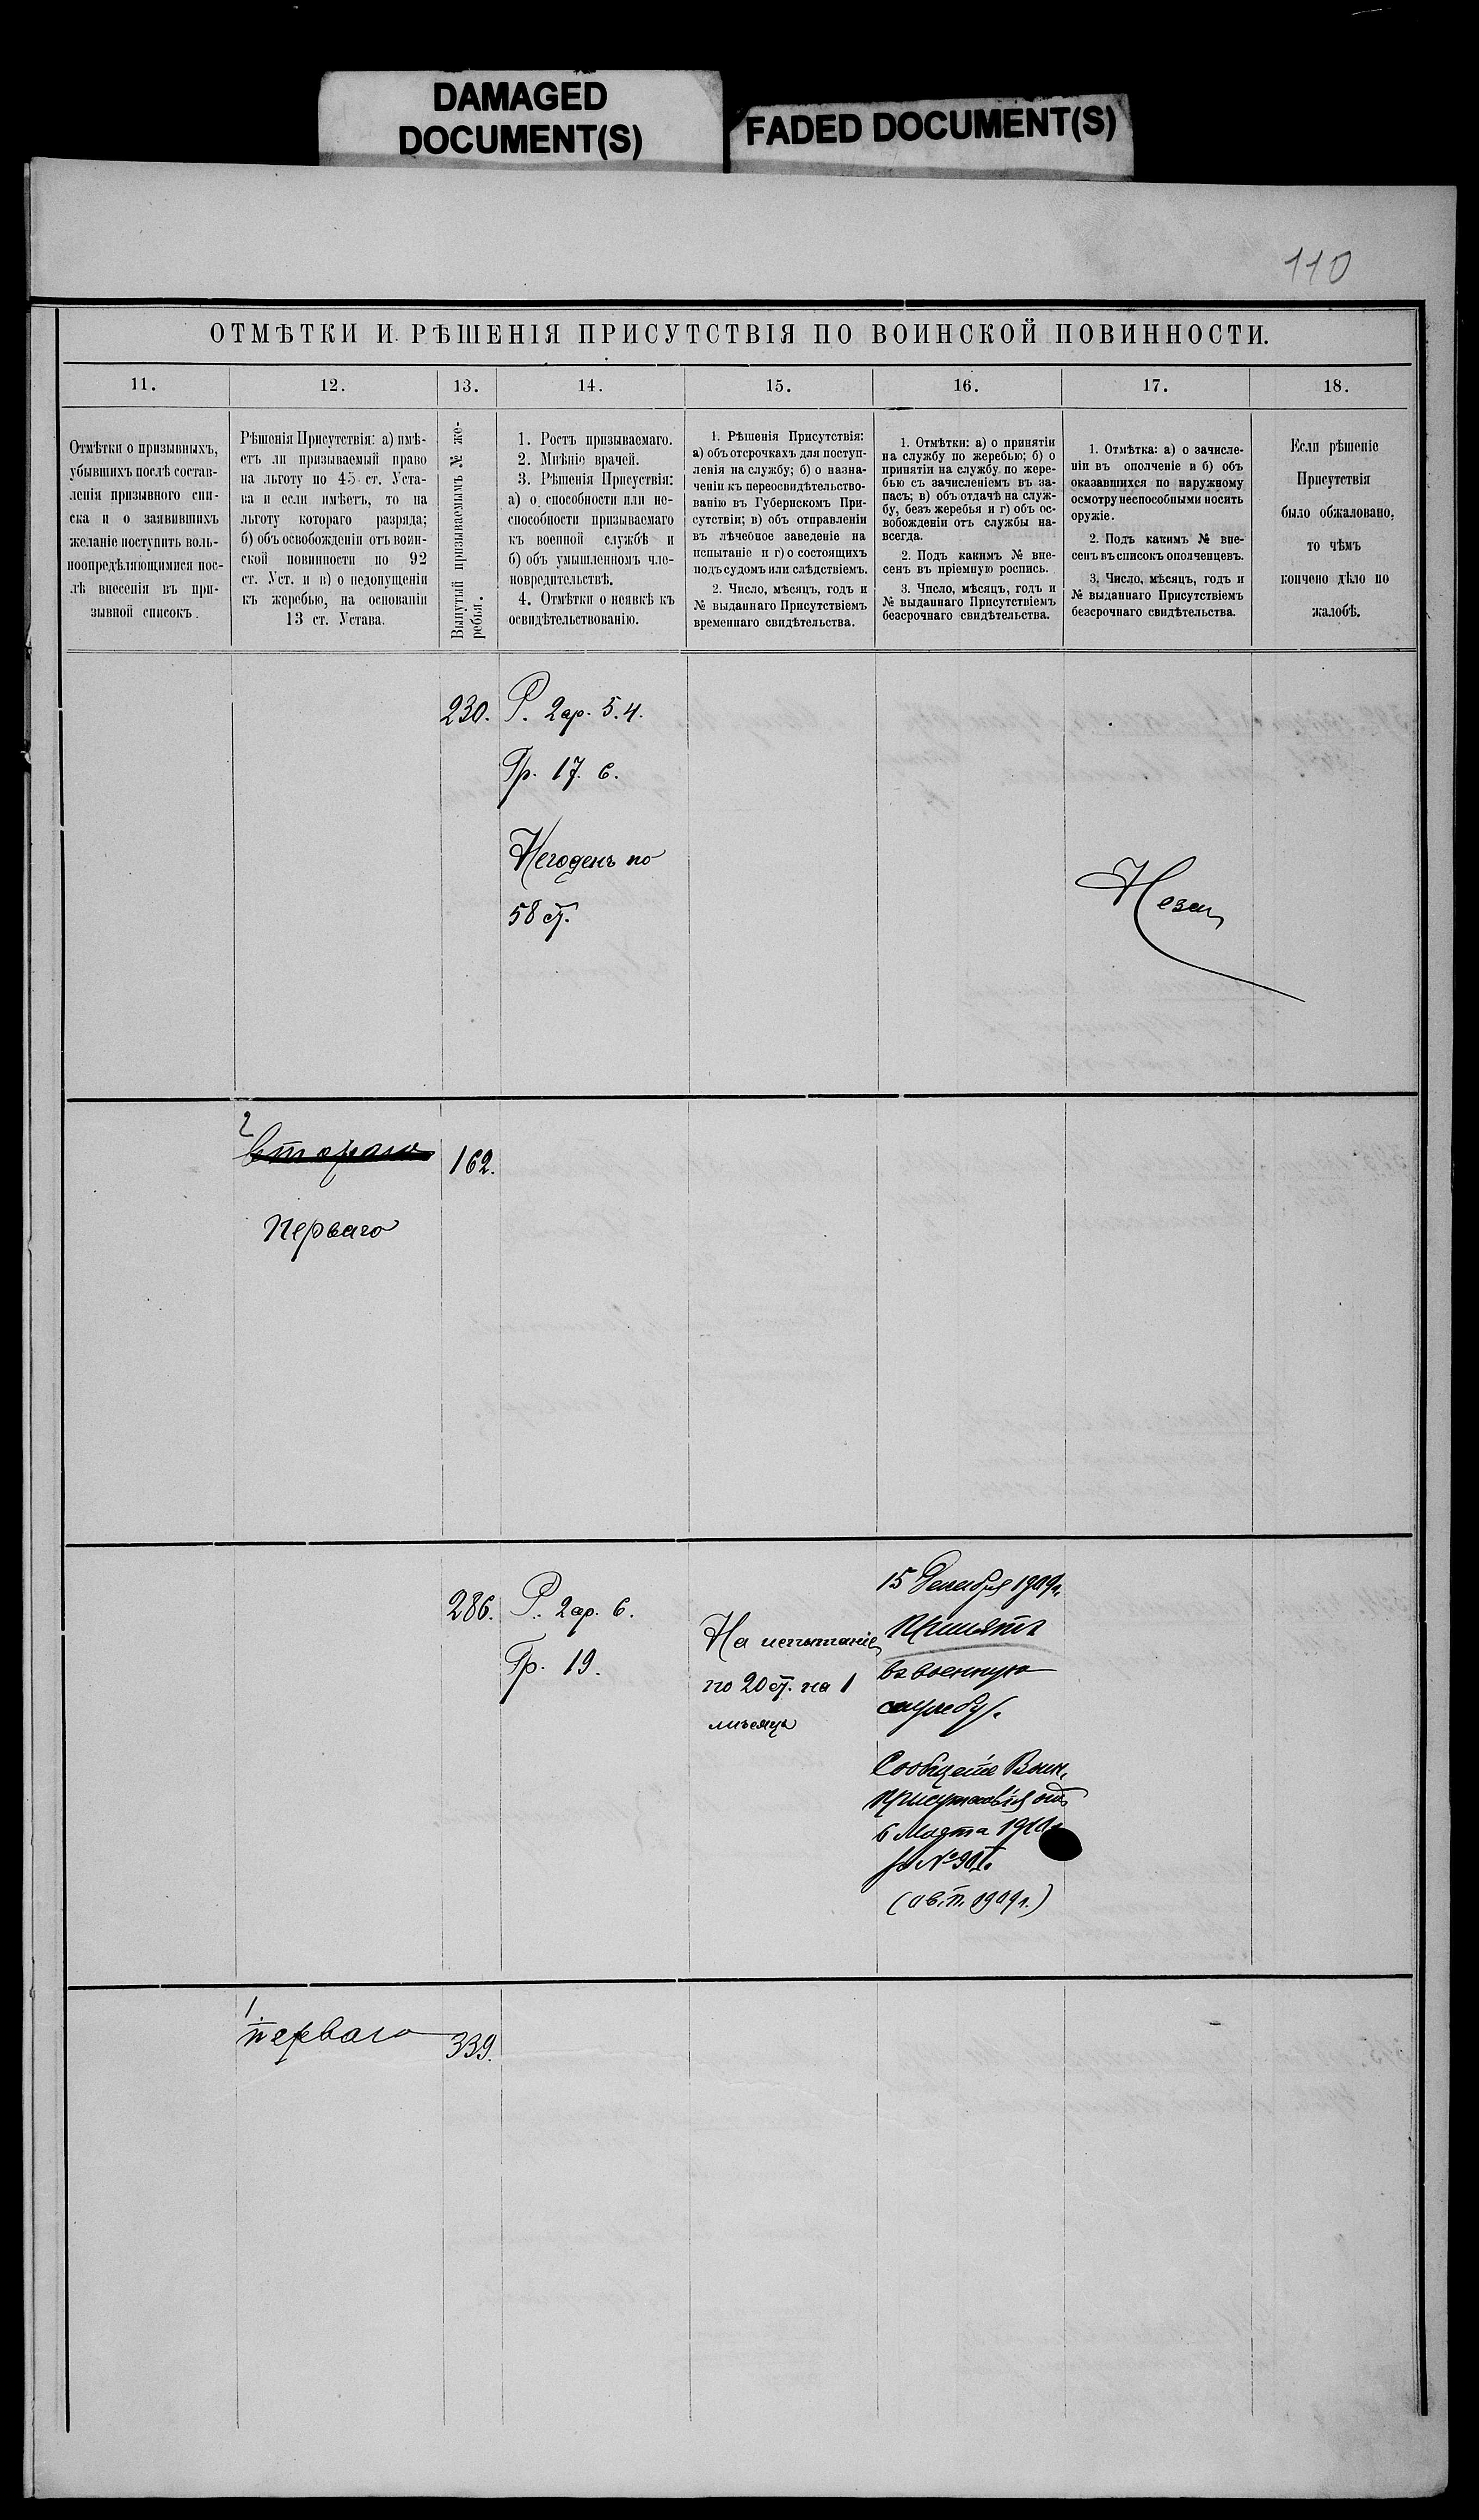 DAMAGED
DOCUMENT(S)
FADED DOCUMENT(S)
110
ОТМѢТКИ И РѢШЕНІЯ ПРИСУТСТВІЯ ПО ВОИНСКОЙ ПОВИННОСТИ.
11.
12.
13.
14.
15.
16.
17.
18.
Отмѣтки о призывныхъ,
убывшихъ послѣ состав-
ленія призывного спи-
ска и о заявившихъ
желаніе поступить воль-
ноопредѣляющимися пос-
лѣ внесенія въ при-
зывной списокъ.
Рѣшенія Присутствія: а) имѣ-
етъ ли призываемый право
на льготу по 45 ст. Уста-
ва и если имѣетъ, то на
льготу котораго разряда;
б) объ освобожденіи отъ воин-
ской повинности по 92
ст. Уст. и в) о недопущеніи
къ жеребью, на основаніи
13 ст. Устава.
Вынутый призываемымъ № же-
ребья.
1. Ростъ призываемаго.
2. Мнѣніе врачей.
3. Рѣшенія Присуствія:
а) о способности или не-
способности призываемаго
къ военной службѣ и
б) объ умышленномъ чле-
новредительствѣ.
4. Отмѣтки о неявкѣ къ
освидѣтельствованію.
1. Рѣшенія Присутствія:
а) объ отсрочкахъ для поступ-
ленія на службу; б) о назна-
ченіи къ переосвидѣтельство-
ванію въ Губернскомъ При-
сутствіи; в) объ отправленіи
въ лѣчебное заведеніе на
испытаніе и г) о состоящихъ
подъ судомъ или слѣдствіемъ.
2. Число, мѣсяцъ, годъ и
№ выданнаго Присутствіемъ
временнаго свидѣтельства.
1. Отмѣтки: а) о принятіи
на службу по жеребью; б) о
принятіи на службу по жере-
бью съ зачисленіемъ въ за-
пасъ; в) объ отдачѣ на служ-
бу, безъ жеребья и г) объ ос-
вобожденіи отъ службы на-
всегда.
2. Подъ какимъ № вне-
сенъ въ пріемную роспись.
3. Число, мѣсяцъ, годъ и
№ выданнаго Присутствіемъ
безсрочнаго свидѣтельства.
1. Отмѣтка: а) о зачисле-
ніи въ ополченіе и б) объ
оказавшихся по наружному
осмотру неспособными носить
оружіе.
2. Подъ какимъ № вне-
сенъ въ списокъ ополченцевъ.
3. Число, мѣсяцъ, годъ и
№ выданнаго Присутствіемъ
безсрочнаго свидѣтельства.
Если рѣшеніе
Присутствія
было обжаловано,
то чѣмъ
кончено дѣло по
жалобѣ.
230.
Р. 2ар. 5.4.
Гр. 17. в.
Негоденъ по
58 ст.
Незач
2
втораго
162.
перваго
286.
Р. 2ар. 6.
Гр. 19.
На испытаніе
по 20 ст. на 1
мѣсяцъ
15 Декабря 1909г.
Принятъ
въ военную
службу.
Сообщеніе Воин.
Присутствія отъ
6 Марта 1910
за №
1909г.)
1
перваго
339.